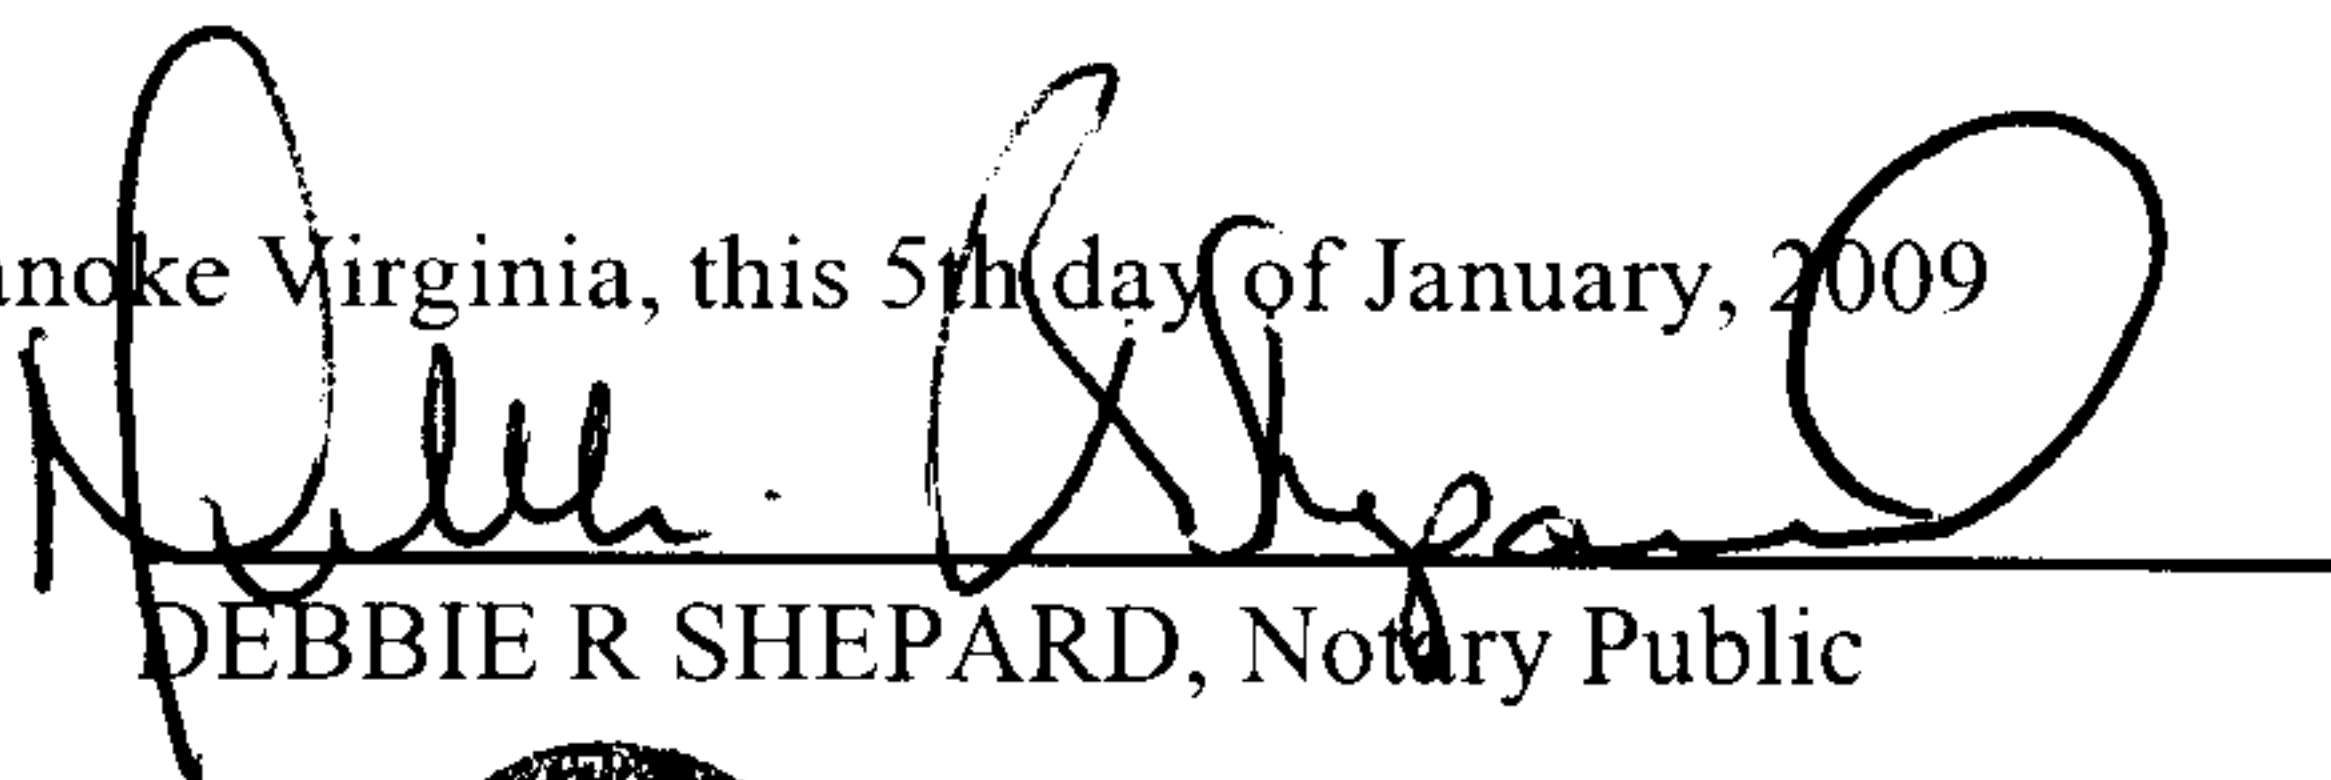 anoke Virginia, this 5th day of January, 2009
Debbie R Shepard
DEBBIE R SHEPARD, Notary Public